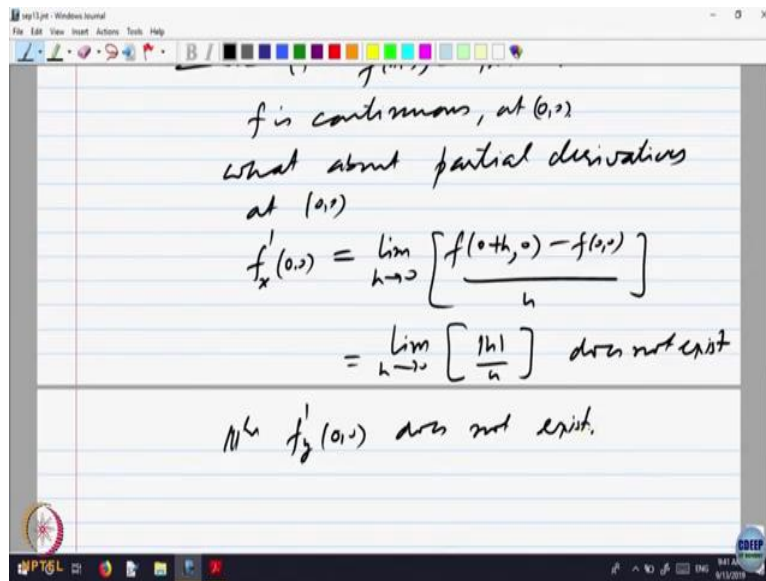 sep13.jnt - Windows Journal
File Edit View Insert Actions Tools Help
f is continuous, at (0,0)
what about partial derivatives
at (0,0)
f'_x (0,0) = lim_{h→0} [ f(0+h, 0) - f(0,0) / h ]
= lim_{h→0} [ |h| / h ] does not exist
f'_y (0,0) does not exist.
NPTEL
CDEEP
ENG
9:41 AM
9/13/2019